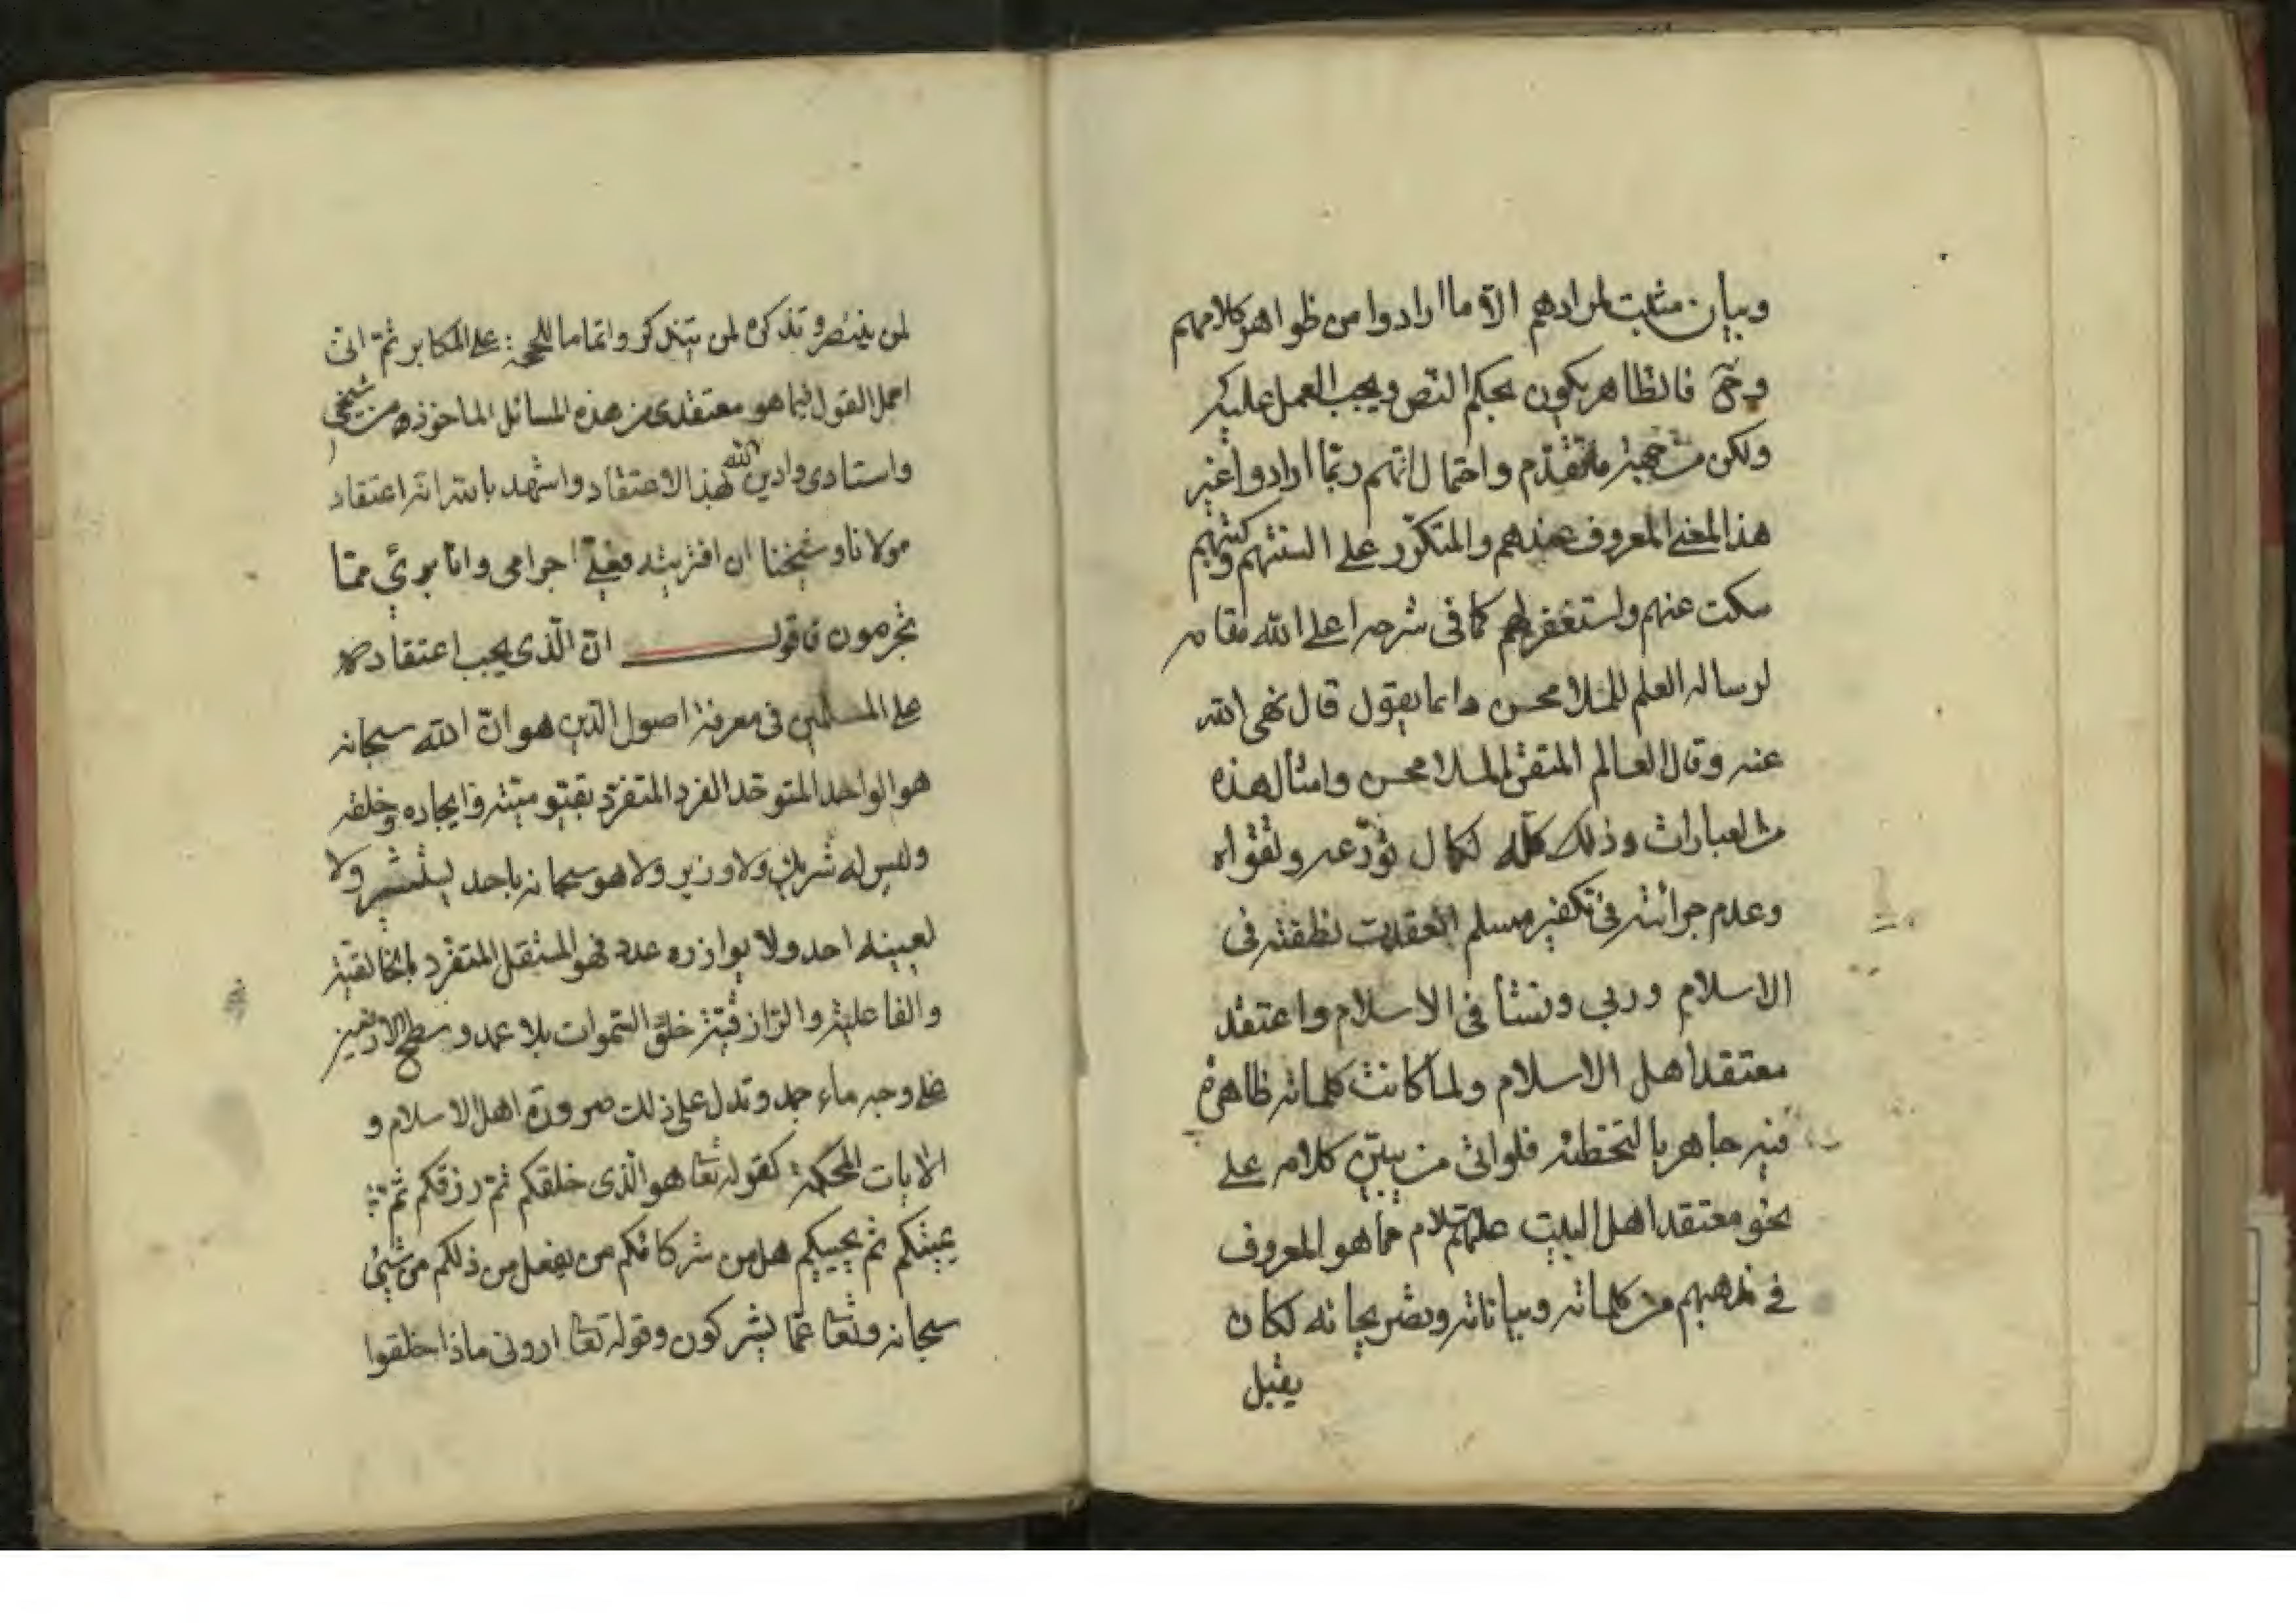 وبيان مثبت لمرادهم الا ما ارادوا من ظواهر كلامهم
وح فالظاهر يكون بحكم النص ويجب العمل عليه
ولكن من حيث ما تقدم واحتمال انهم ربما ارادوا غير
هذا المعنى المعروف عندهم والمتكرر على السنتهم وكتبهم
سكت عنهم واستغفر لهم كما فى شرحه اعلى الله مقامه
لرسالة العلم للملا محسن دائما يقول قال عفى الله
عنه وقال العالم المتقن الملا محسن وامثال هذه
من العبارات وذلك كله لكمال تورعه وتقواه
وعدم جرائته فى تكفير مسلم انعقدت نطفته فى
الاسلام وربي ونشأ فى الاسلام واعتقد
معتقد اهل الاسلام ولما كانت كلماته ظاهرة
فيه جاهر بالتخطئة فلو اتى من يبين كلامه على
نحو معتقد اهل البيت عليهم السلام مما هو المعروف
فى مذهبهم من كلماته وبياناته وتصريحاته لكان
يقبل
لمن ينتصر وتذكرة لمن يتذكر واتماما للحجة على المكابر ثم انى
اجمل القول فيما هو معتقدى من هذه المسائل الماخوذة من شيخى
واستادى وادين الله بهذا الاعتقاد واشهد بالله انه اعتقاد
مولانا وشيخنا ان افتريته فعلى اجرامى وانا برئ مما
تجرمون فاقول ان الذى يجب اعتقاده
على المسلمين فى معرفة اصول الدين هو ان الله سبحانه
هو الواحد المتوحد الفرد المتفرد بقيوميته وايجاده وخلقه
وليس له شريك ولا وزير ولا هو سبحانه باحد يستشير ولا
يعينه احد ولا يوازره عدد فهو المستقل المتفرد بالخالقية
والفاعلية والرازقية خلق السموات بلا عمد وسطح الارضين
على وجه ماء جمد وتدل على ذلك ضرورة اهل الاسلام و
الايات المحكمة كقوله تعا هو الذى خلقكم ثم رزقكم ثم
يميتكم ثم يحييكم هل من شركائكم من يفعل من ذلكم من شئ
سبحانه وتعا عما يشركون وقوله تعا ارونى ماذا خلقوا